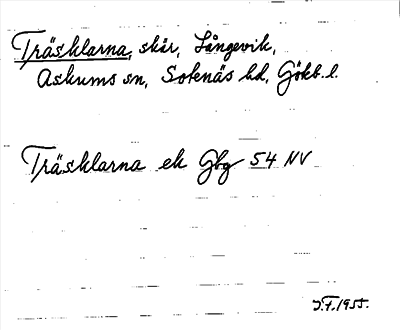 Träsklarna, skär, Långevik,
Askums sn, Sotenäs hd, Götib. l.
Träsklarna ek Gbg 54 NV
J.F. 1955.